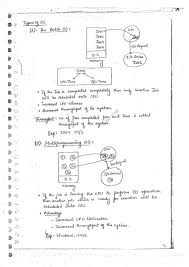 Types of OS
(1) The Batch OS :
Job1
Job2
Job3
O.S
memory
CPU
Job
CPU Time
I/O Time
• If the Job is completed completely then only another Job
will be scheduled onto CPU.
• Increased CPU idleness
• Decreased throughput of the system.
Throughput : no of jobs completed per unit time is called
throughput of the system.
Exp:
(2) Multiprogramming OS :
CPU
O.S
memory
• If the job is leaving the CPU to perform IO operation
then another job which is ready for execution will be
scheduled onto CPU.
• Advantage
- Increased CPU Utilization
- Increased throughput of the system.
Exp: Windows, Unix